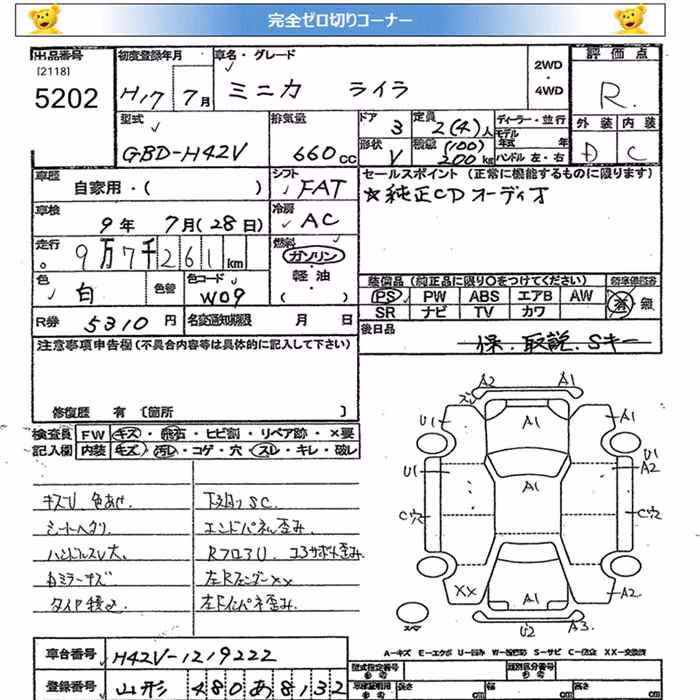 完全ゼロ切りコーナー
出品番号
[2118]
5202
初度登録年月
H17年 7月
車名・グレード
ミニカ ライラ
2WD
・
4WD
評価点
R
型式
GBD-H42V
排気量
660cc
ドア
3
定員
2(4)人
形状
V
積量
(100)
200kg
ディーラー・並行
モデル
年式 年
ハンドル 左・右
外装
D
内装
C
車歴
自家用・( )
シフト
FAT
セールスポイント(正常に機能するものに限ります)
☆純正CDオーディオ
車検
9年 7月(28日)
冷房
AC
走行
9万7千261km
燃料
ガソリン
軽・油
( )
色
白
色替
色コード
W09
装備品(純正品に限り○をつけてください)
PS PW ABS エアB AW
SR ナビ TV カワ
有 無
R券 5310円
名変通知期限 月 日
後日品
保.取説.Sキー
注意事項申告欄(不具合内容等は具体的に記入して下さい)
修復歴 有〔箇所 〕
検査員
記入欄
FW キズ・飛石・ヒビ割・リペア跡・×要
内装 キズ・汚レ・コゲ・穴・スレ・キレ・破レ
キズU 色あせ
シートヘタリ
ハンドルスレ大
タイヤ積込
下廻りSC
エンドパネル歪み
RフロアU コアサポート歪み
左RフェンダーXX
左Rインパネ歪み
A2 A1
U1 A1 A1
U1 A1 U1
A2
C穴 C穴
XX A1 A2
U2 A3
スペア
A-キズ E-エクボ U-凹み W-補修跡 S-サビ C-腐食 XX-交換済
車台番号 H42V-1219222
登録番号 山形 480 あ 8132
型式指定番号
参考
類別区分番号
参考
長さ cm 幅 cm 高さ cm